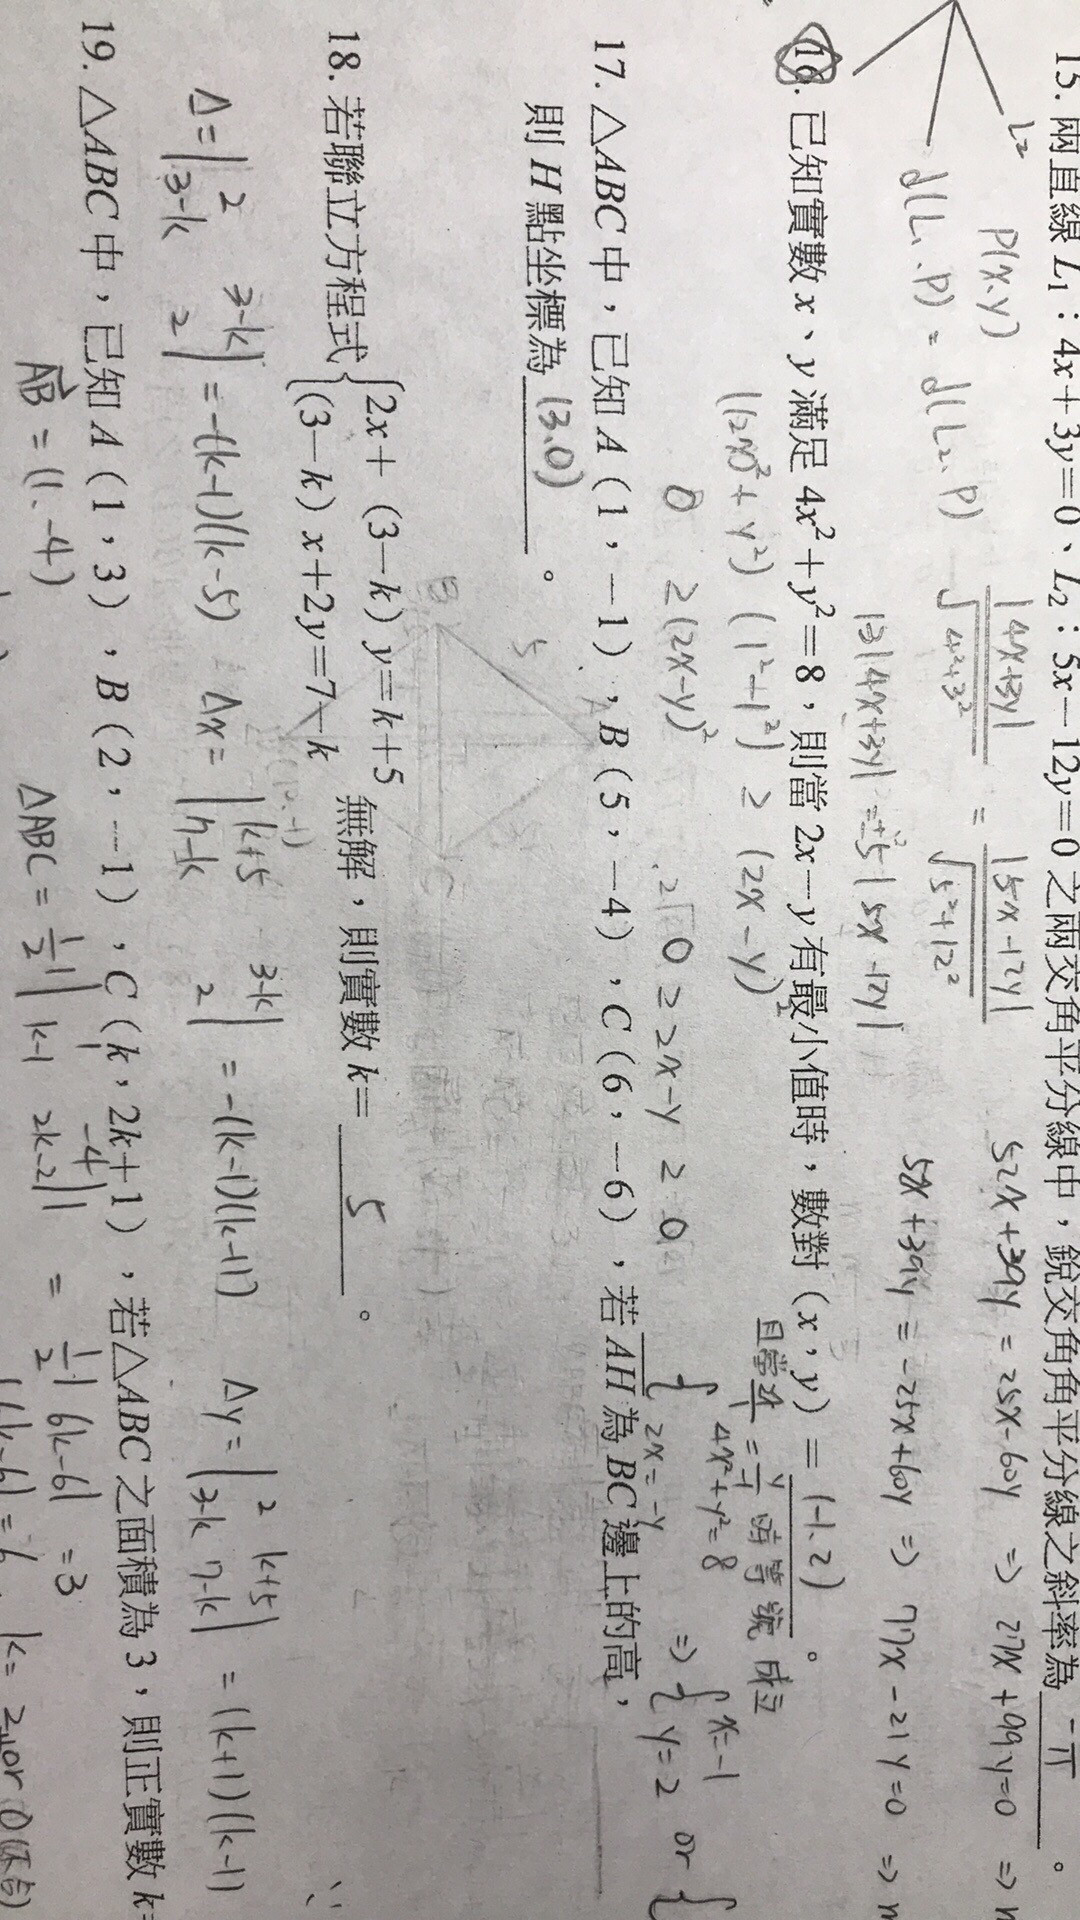 15. 兩直線 L₁：4x＋3y＝0、L₂：5x－12y＝0 之兩交角平分線中，銳交角角平分線之斜率為
L₂ P(x、y)
|4x+3y| / √4²+3² = |5x-12y| / √5²+12²
52x+39y = 25x-60y ⇒ 27x+99y=0 ⇒
d(L₁、P) = d(L₂、P)
13|4x+3y| = ±5|5x-12y|
52x+39y = -25x+60y ⇒ 77x-21y=0 ⇒ m
16. 已知實數 x、y 滿足 4x²＋y²＝8，則當 2x－y 有最小值時，數對（x，y）＝ (-1、2) 。
((2x)²+y²) (1²+1²) ≥ (2x-y)²
≥ (2x-y)²
0 ≥ 2x-y ≥ 0
時等號成立
{ 4x²+y²=8
2x=-y ⇒ { x=-1
y=2 or {
17. △ABC 中，已知 A（1，－1），B（5，－4），C（6，－6），若 AH 為 BC 邊上的高，
則 H 點坐標為 (3、0) 。
18. 若聯立方程式 { 2x＋（3－k）y＝k＋5
（3－k）x＋2y＝7－k 無解，則實數 k＝ 5 。
Δ = | 2 3-k
3-k 2 | = -(k-1)(k-5) Δx = | k+5 3-k
7-k 2 | = -(k-1)(k-11) Δy = | 2 k+5
3-k 7-k | = (k+1)(k-1) ∵
19. △ABC 中，已知 A（1，3），B（2，－1），C（k，2k＋1），若△ABC 之面積為 3，則正實數 k＝
AB = (1、-4) ΔABC = 1/2 | 1 -4
k-1 2k-2 | = 1/2 |6k-6| = 3
|6k-6| = 6 k= 2 or 0(不合)